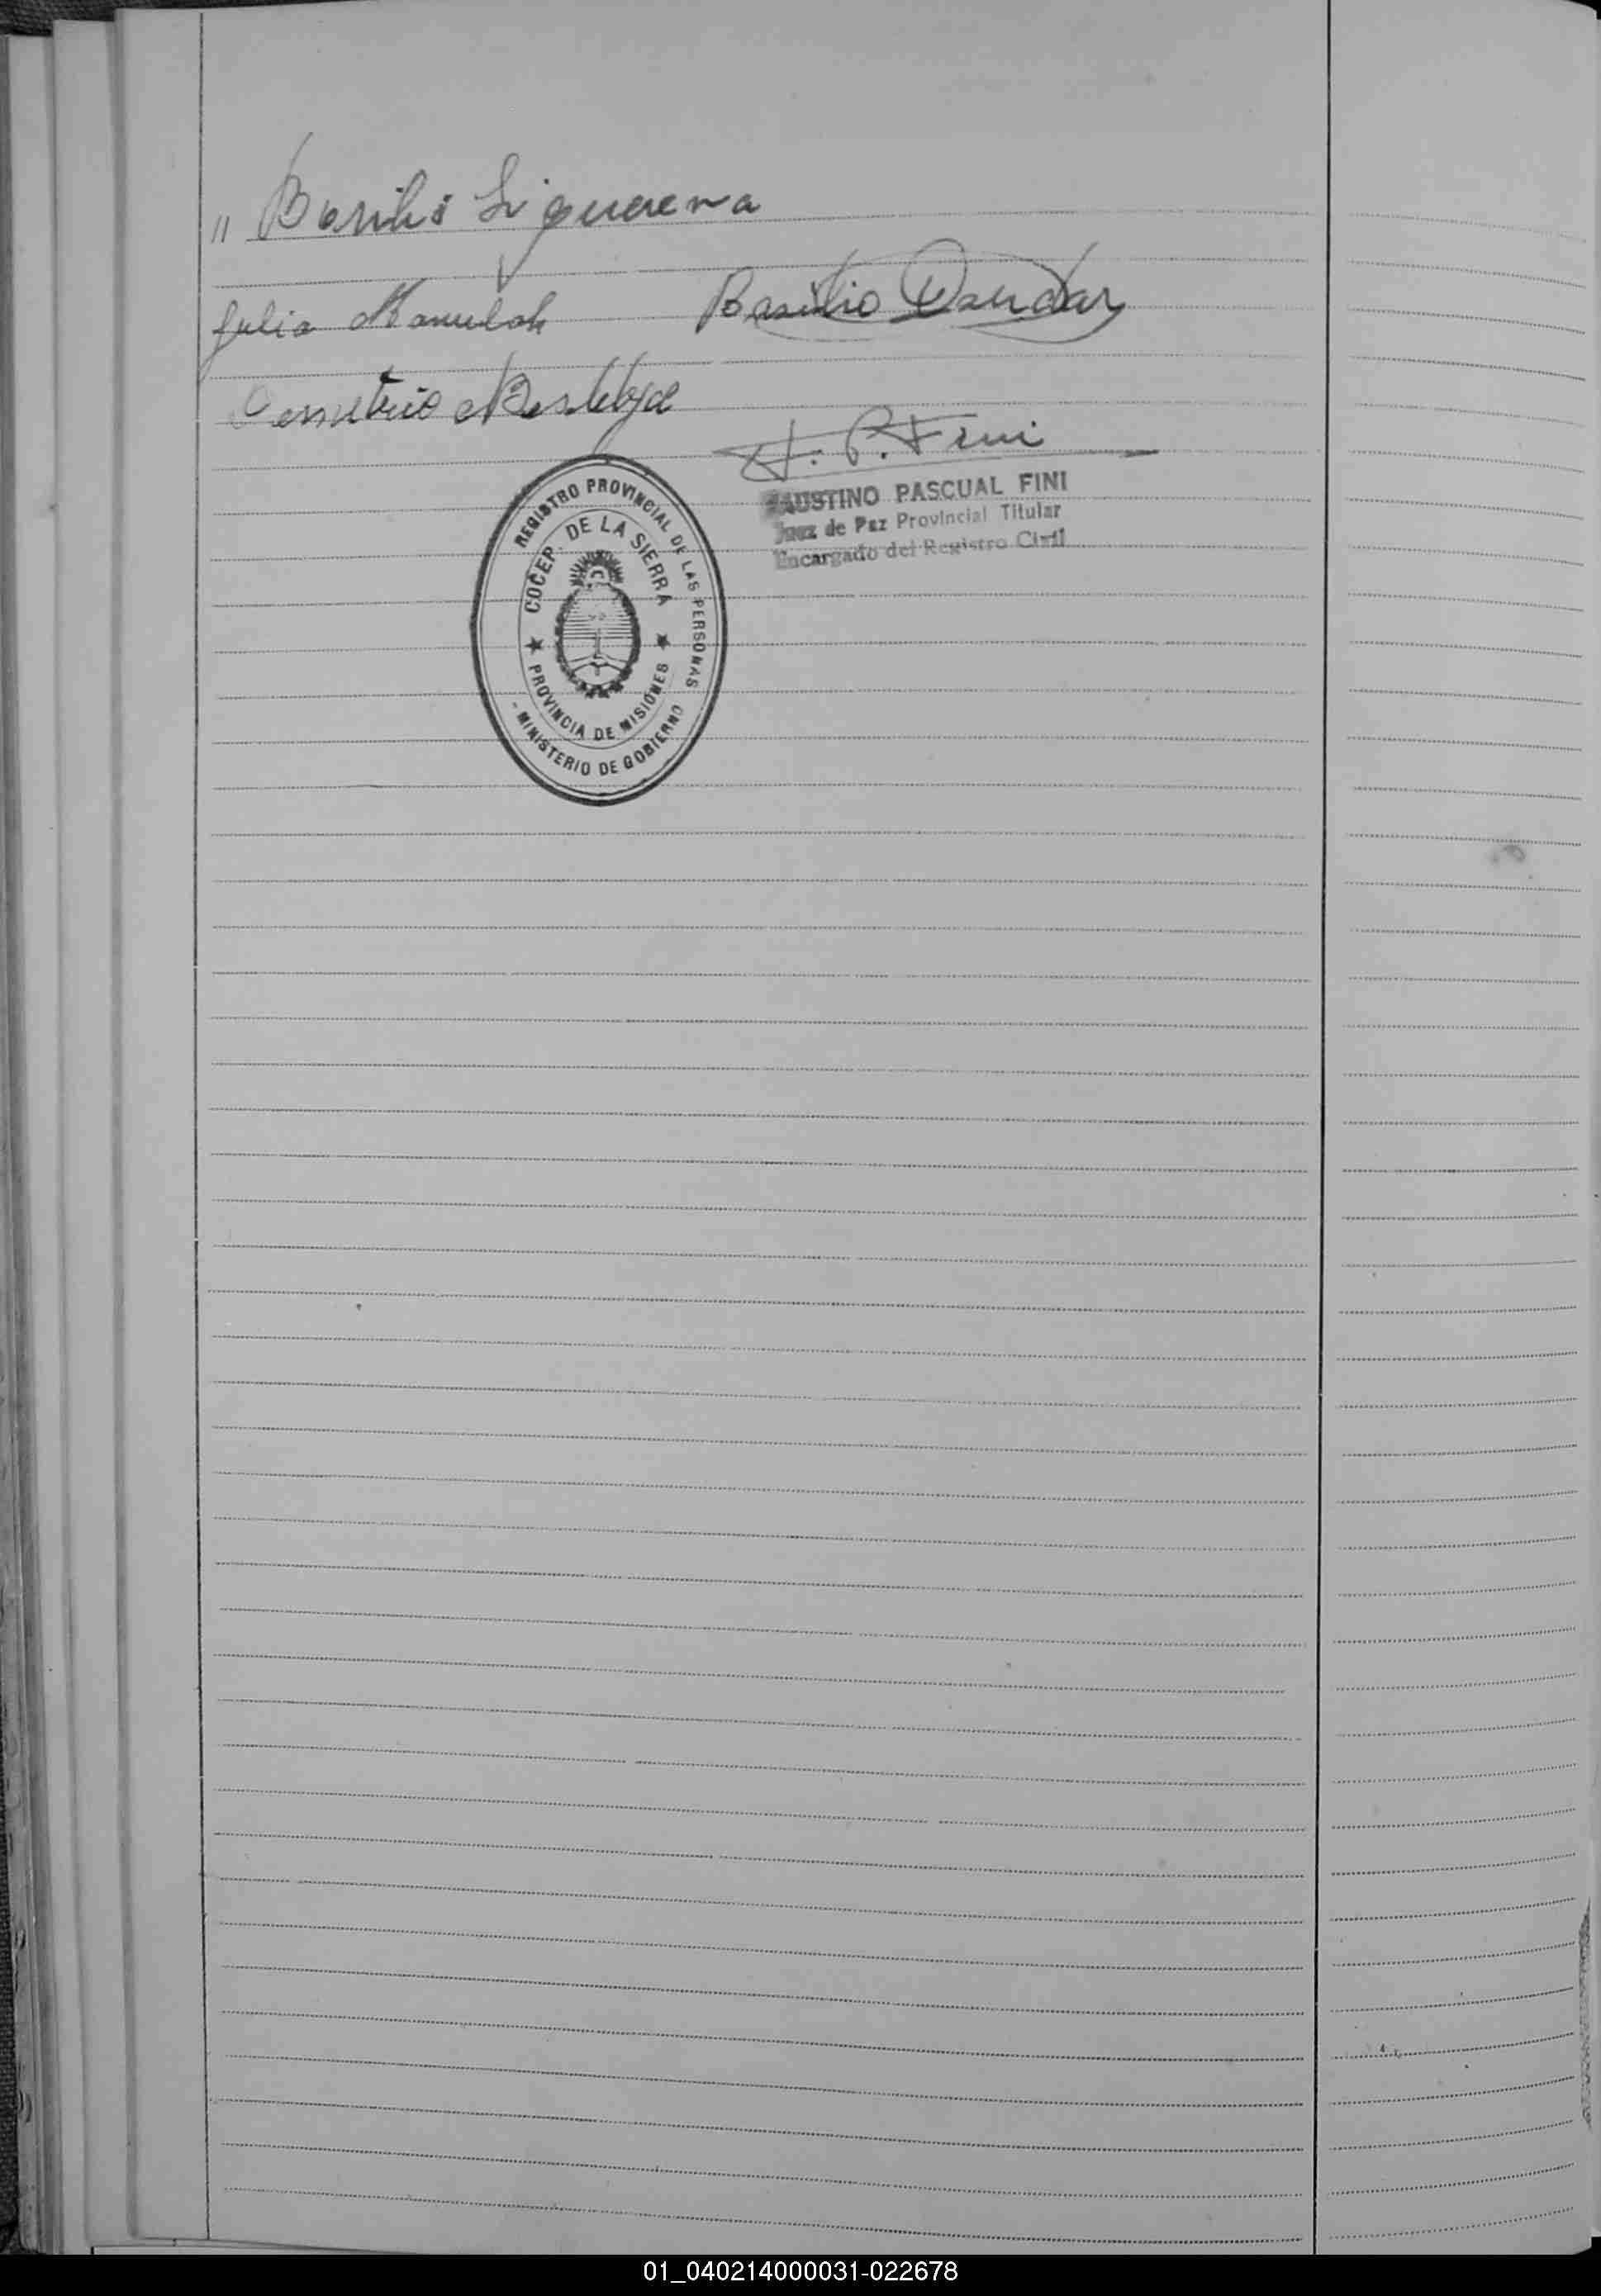 " Basilio Siguerena
Julia Manulak Basilio Dandar
Demetrio
F. P. Fini
FAUSTINO PASCUAL FINI
Juez de Paz Provincial Titular
Encargado del Registro Civil
REGISTRO PROVINCIAL DE LAS PERSONAS
COCEP. DE LA SIERRA
PROVINCIA DE MISIONES
- MINISTERIO DE GOBIERNO
01_040214000031-022678